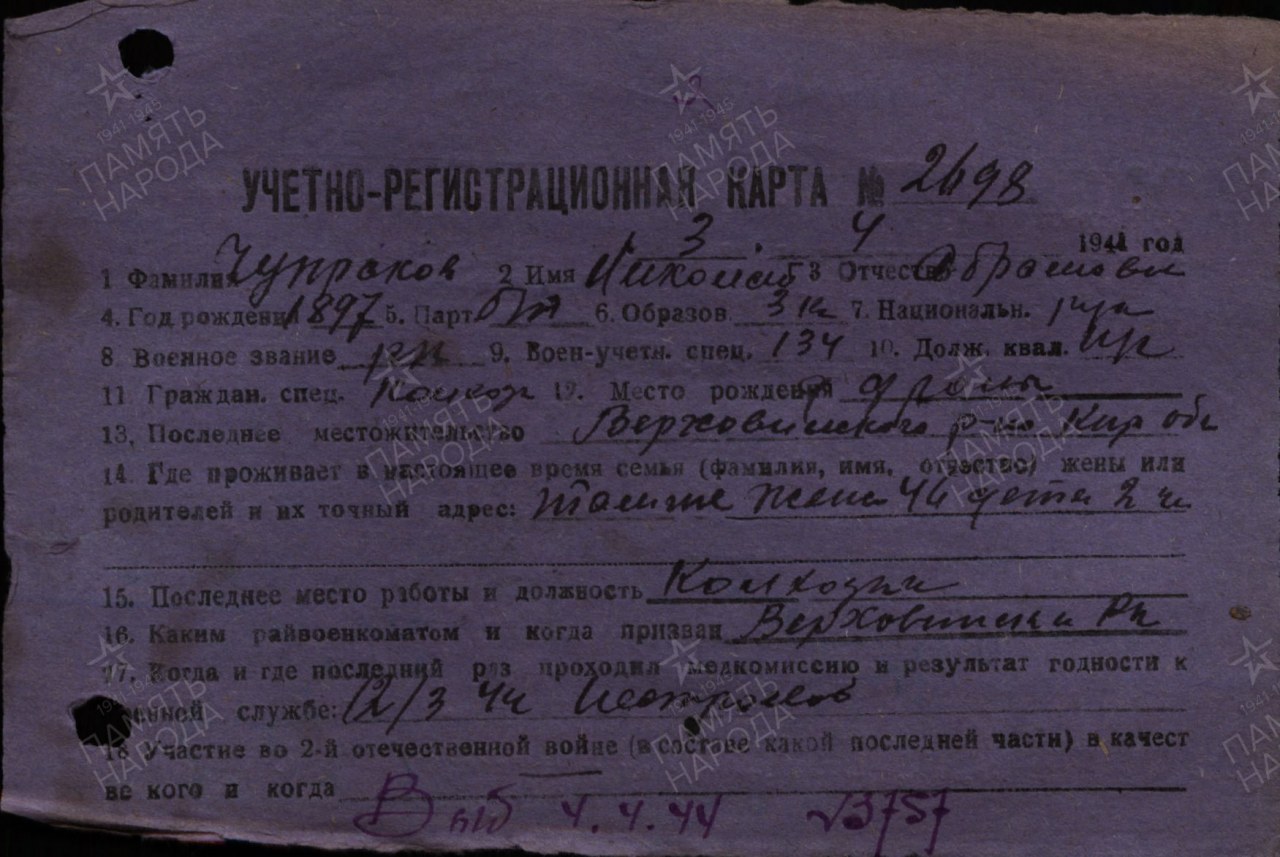 УЧЕТНО-РЕГИСТРАЦИОННАЯ КАРТА № 2698
3 4 1944 год
1 Фамилия Чупраков 2 Имя Николай 3 Отчество Абрамович
4. Год рождения 1897 5. Парт. б/п 6. Образов. 3 кл 7. Национальн.
8 Военное звание 9. Воен-учетн. спец. 134 10. Долж. квал.
11 Граждан. спец. 12. Место рождения
13. Последнее местожительство Верховинского р-на Кир обл
14. Где проживает в настоящее время семья (фамилия, имя, отчество) жены или
родителей и их точный адрес: жена
15. Последнее место работы и должность
16. Каким райвоенкоматом и когда призван
17. Когда и где последний раз проходил медкомиссию и результат годности к
военной службе: 12/3 44
18 Участие во 2-й отечественной войне (в составе какой последней части) в качест
ве кого и когда —
Выб 4.4.44 3757
ПАМЯТЬ НАРОДА
1941-1945